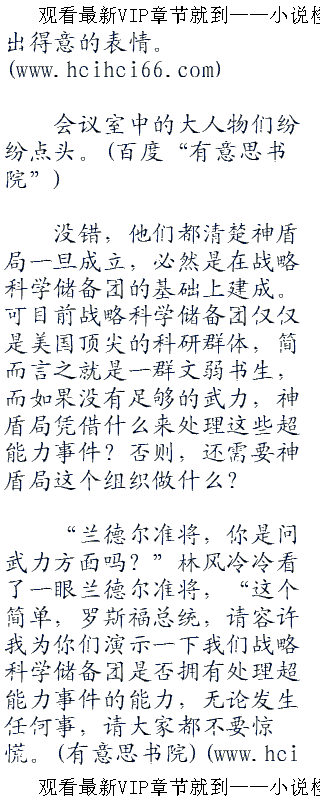 观看最新VIP章节就到——小说检
出得意的表情。
(www.hcihci66.com)
会议室中的大人物们纷
纷点头。(百度“有意思书
院”)
没错，他们都清楚神盾
局一旦成立，必然是在战略
科学储备团的基础上建成。
可目前战略科学储备团仅仅
是美国顶尖的科研群体，简
而言之就是一群文弱书生，
而如果没有足够的武力，神
盾局凭借什么来处理这些超
能力事件？否则，还需要神
盾局这个组织做什么？
“兰德尔准将，你是问
武力方面吗？”林风冷冷看
了一眼兰德尔准将，“这个
简单，罗斯福总统，请容许
我为你们演示一下我们战略
科学储备团是否拥有处理超
能力事件的能力，无论发生
任何事，请大家都不要惊
慌。(有意思书院)(www.hci
观看最新VIP章节就到——小说检